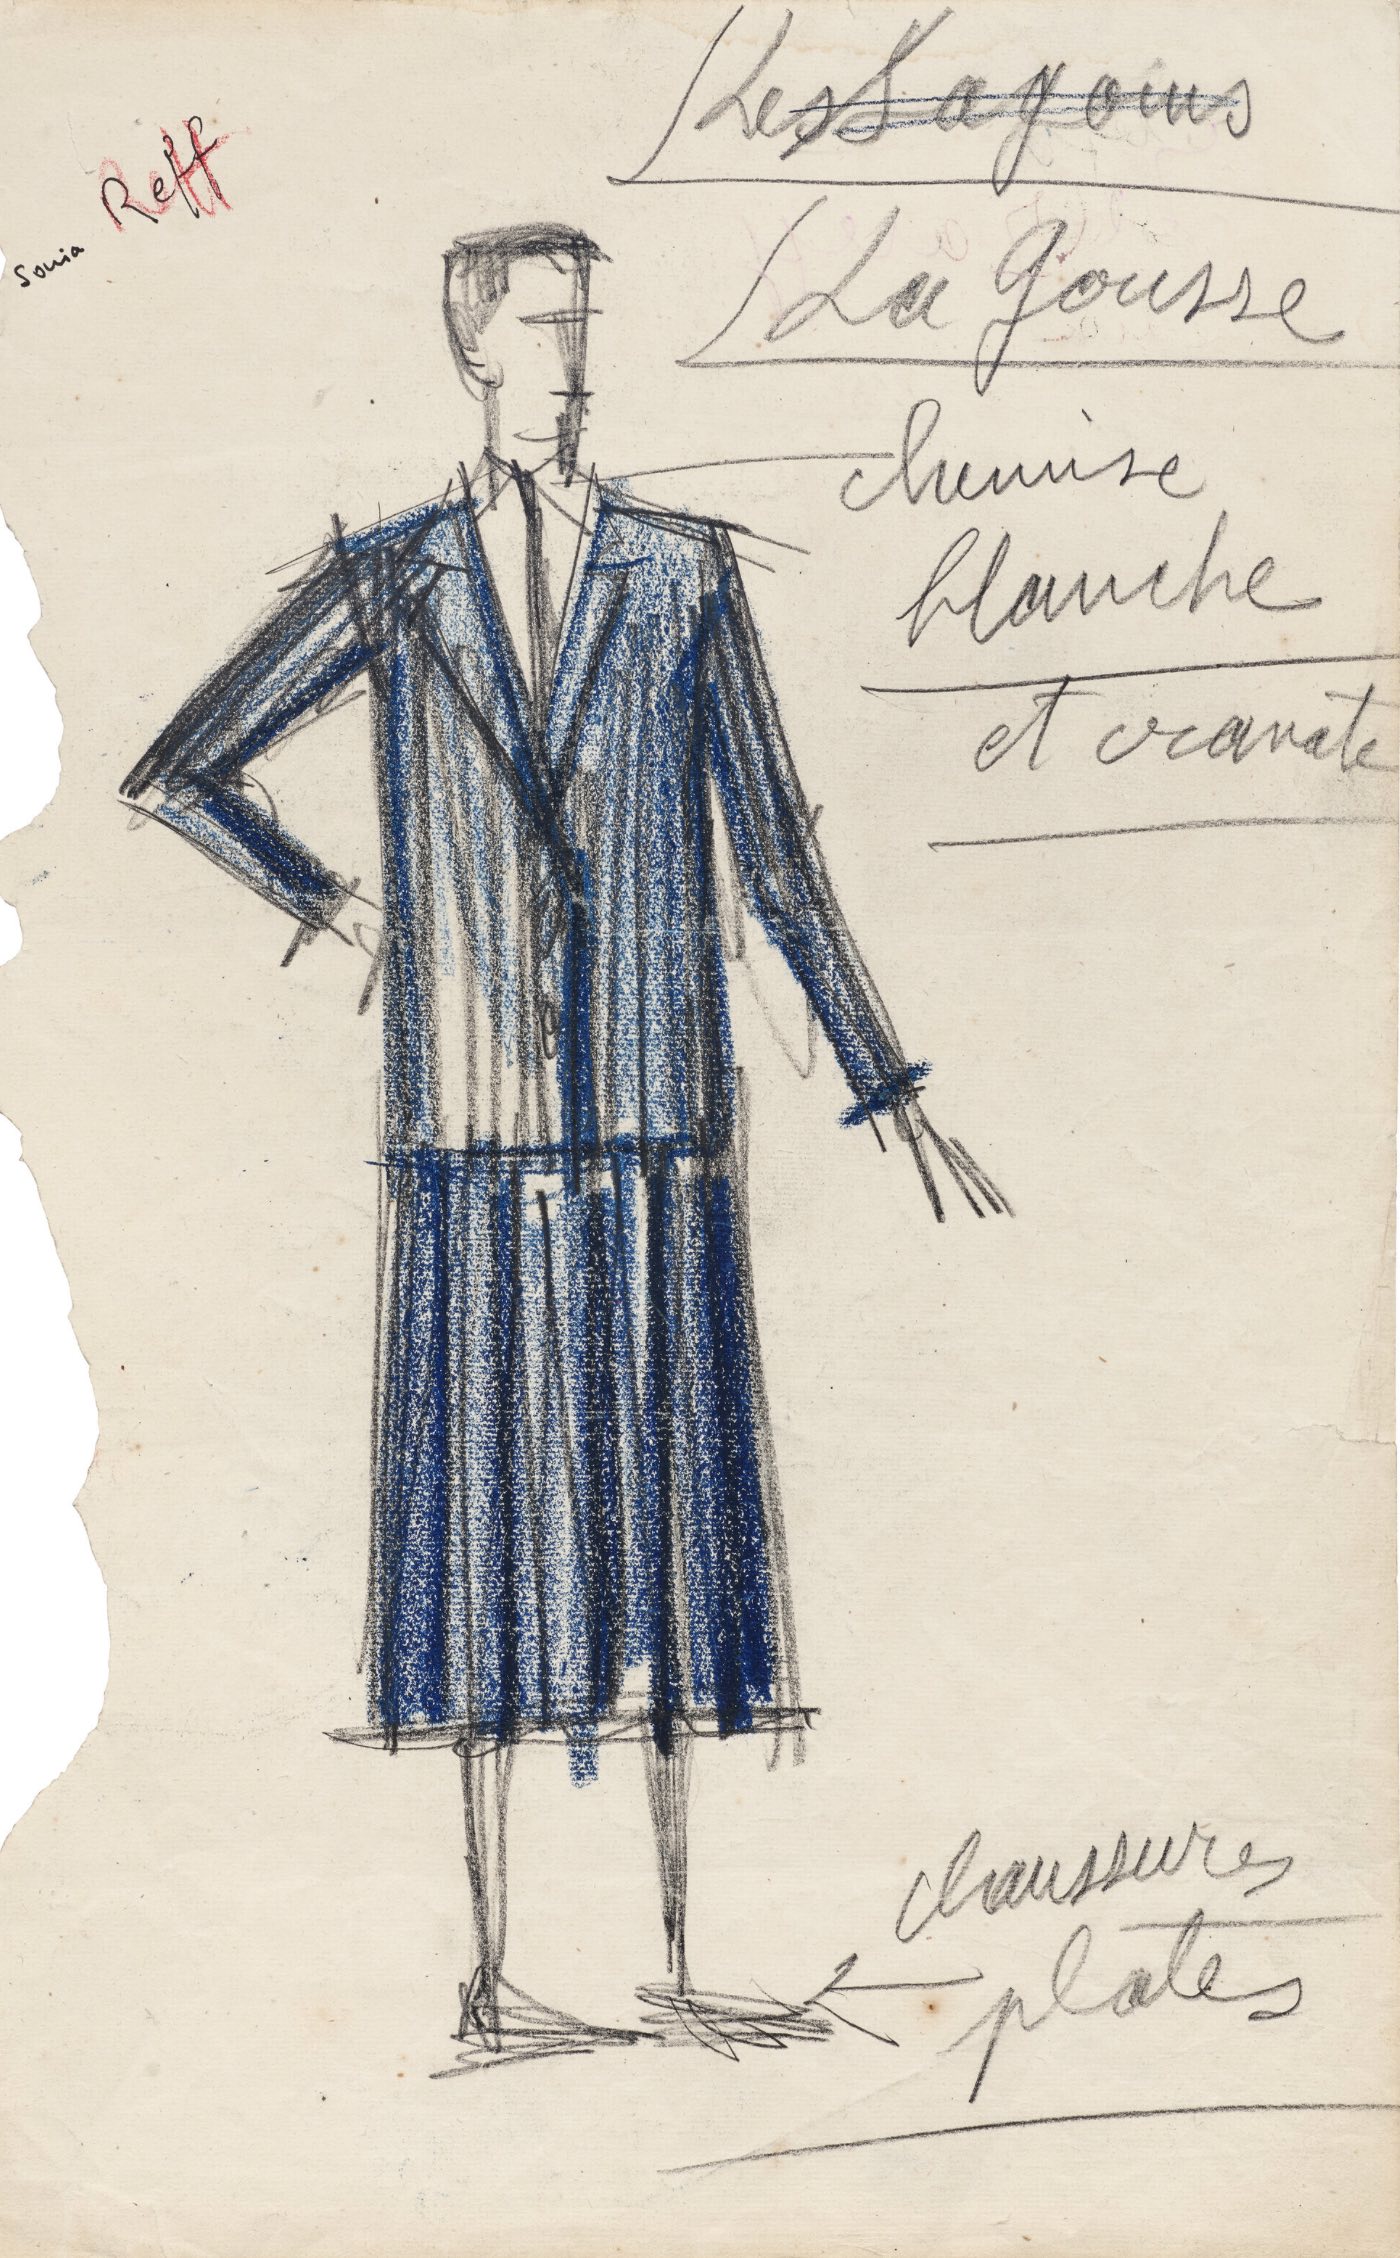 Les Sagoins
Reff
Sonia
La Gousse
chemise
blanche
et cravate
chaussures
plates